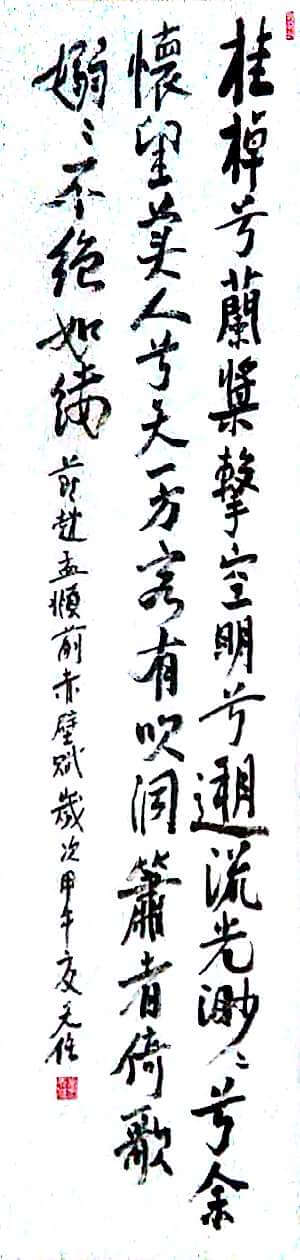 桂棹兮蘭槳擊空明兮遡流光渺〻兮余
懷望美人兮天一方客有吹洞簫者倚歌
嫋〻不絶如縷 趙孟頫前赤壁賦歲次甲午夏